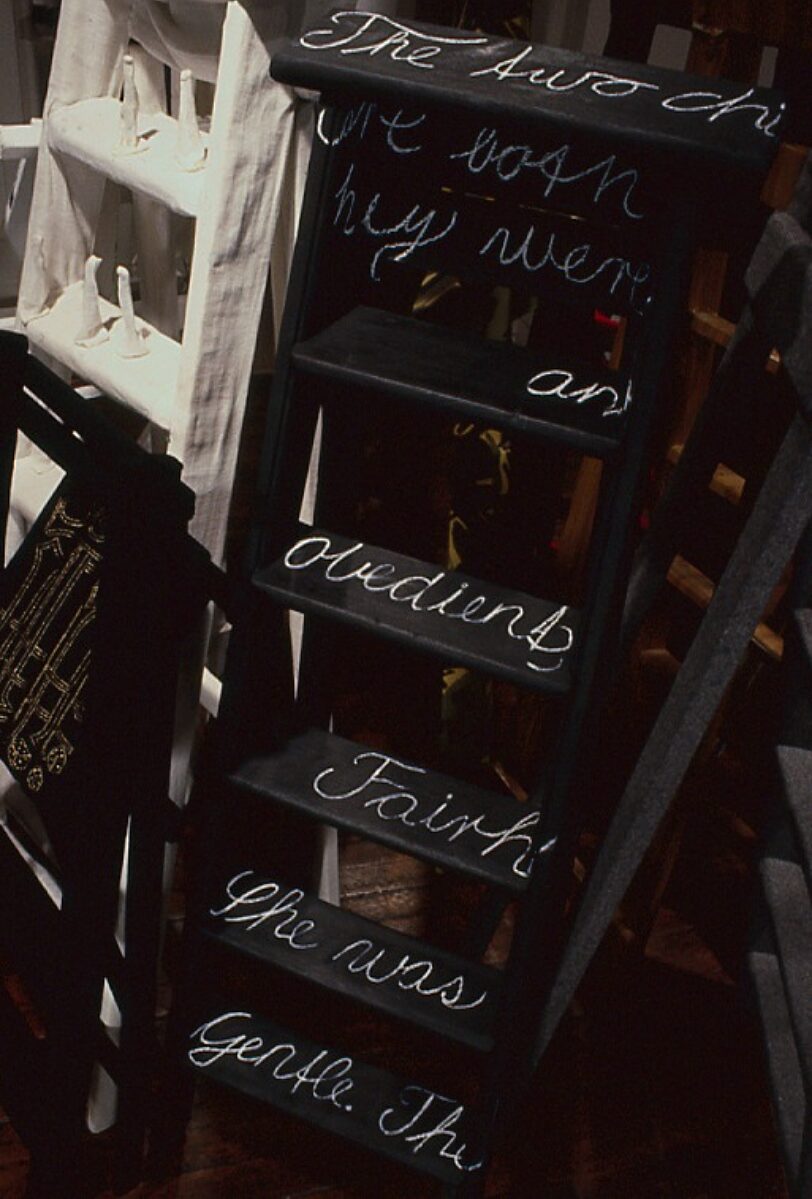 The two chi
ere both
hey were
an
obedient
Fairh
She was
Gentle. The